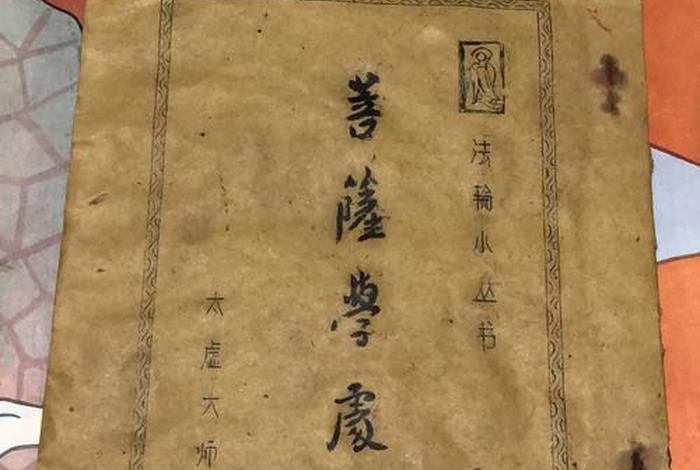 法輪小丛书
菩薩學處
太虛大师